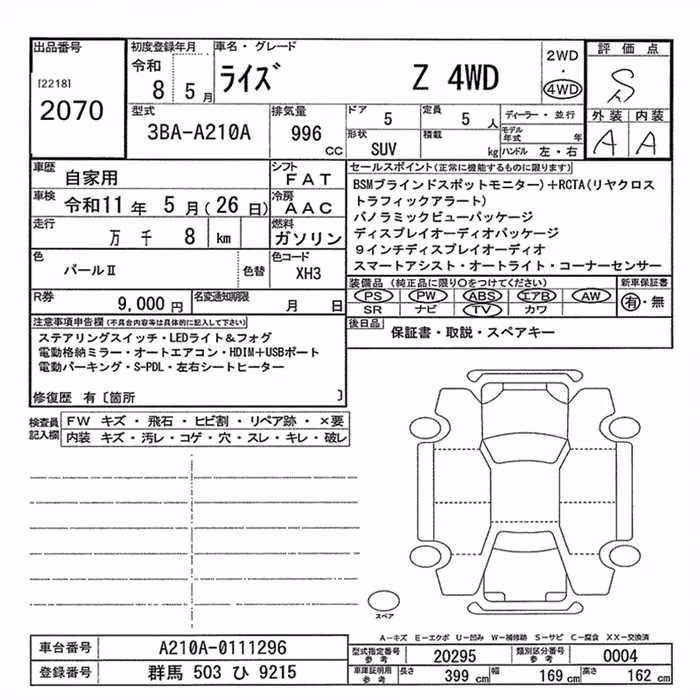 出品番号
[2218]
2070
初度登録年月
令和 8 5 月
車名・グレード
ライズ Z 4WD
2WD
・
4WD
評価点
S
外装 内装
A A
型式
3BA-A210A
排気量
996 CC
ドア 5
定員 5 人
形状 SUV
積載 kg
ディーラー・並行
モデル年式 年
ハンドル 左・右
車歴 自家用
車検 令和11 年 5 月(26 日)
走行 万 千 8 km
色 パールⅡ 色替
シフト FAT
冷房 AAC
燃料 ガソリン
色コード XH3
R券 9,000 円
名変通知期限 月 日
セールスポイント(正常に機能するものに限ります)
BSMブラインドスポットモニター)+RCTA(リヤクロス
トラフィックアラート)
パノラミックビューパッケージ
ディスプレイオーディオパッケージ
9インチディスプレイオーディオ
スマートアシスト・オートライト・コーナーセンサー
装備品(純正品に限り〇をつけてください)
PS PW ABS エアB AW
SR ナビ TV カワ
新車保証書
有・無
後日品
保証書・取説・スペアキー
注意事項申告欄(不具合内容等は具体的に記入して下さい)
ステアリングスイッチ・LEDライト&フォグ
電動格納ミラー・オートエアコン・HDIM+USBポート
電動パーキング・S-PDL・左右シートヒーター
修復歴 有〔箇所 〕
検査員記入欄
FW キズ・飛石・ヒビ割・リペア跡・×要
内装 キズ・汚レ・コゲ・穴・スレ・キレ・破レ
スペア
A-キズ E-エクボ U-凹み W-補修跡 S-サビ C-腐食 XX-交換済
車台番号 A210A-0111296
登録番号 群馬 503 ひ 9215
型式指定番号 参考 20295
類別区分番号 参考 0004
車庫証明用 参考 長さ 399 cm 幅 169 cm 高さ 162 cm